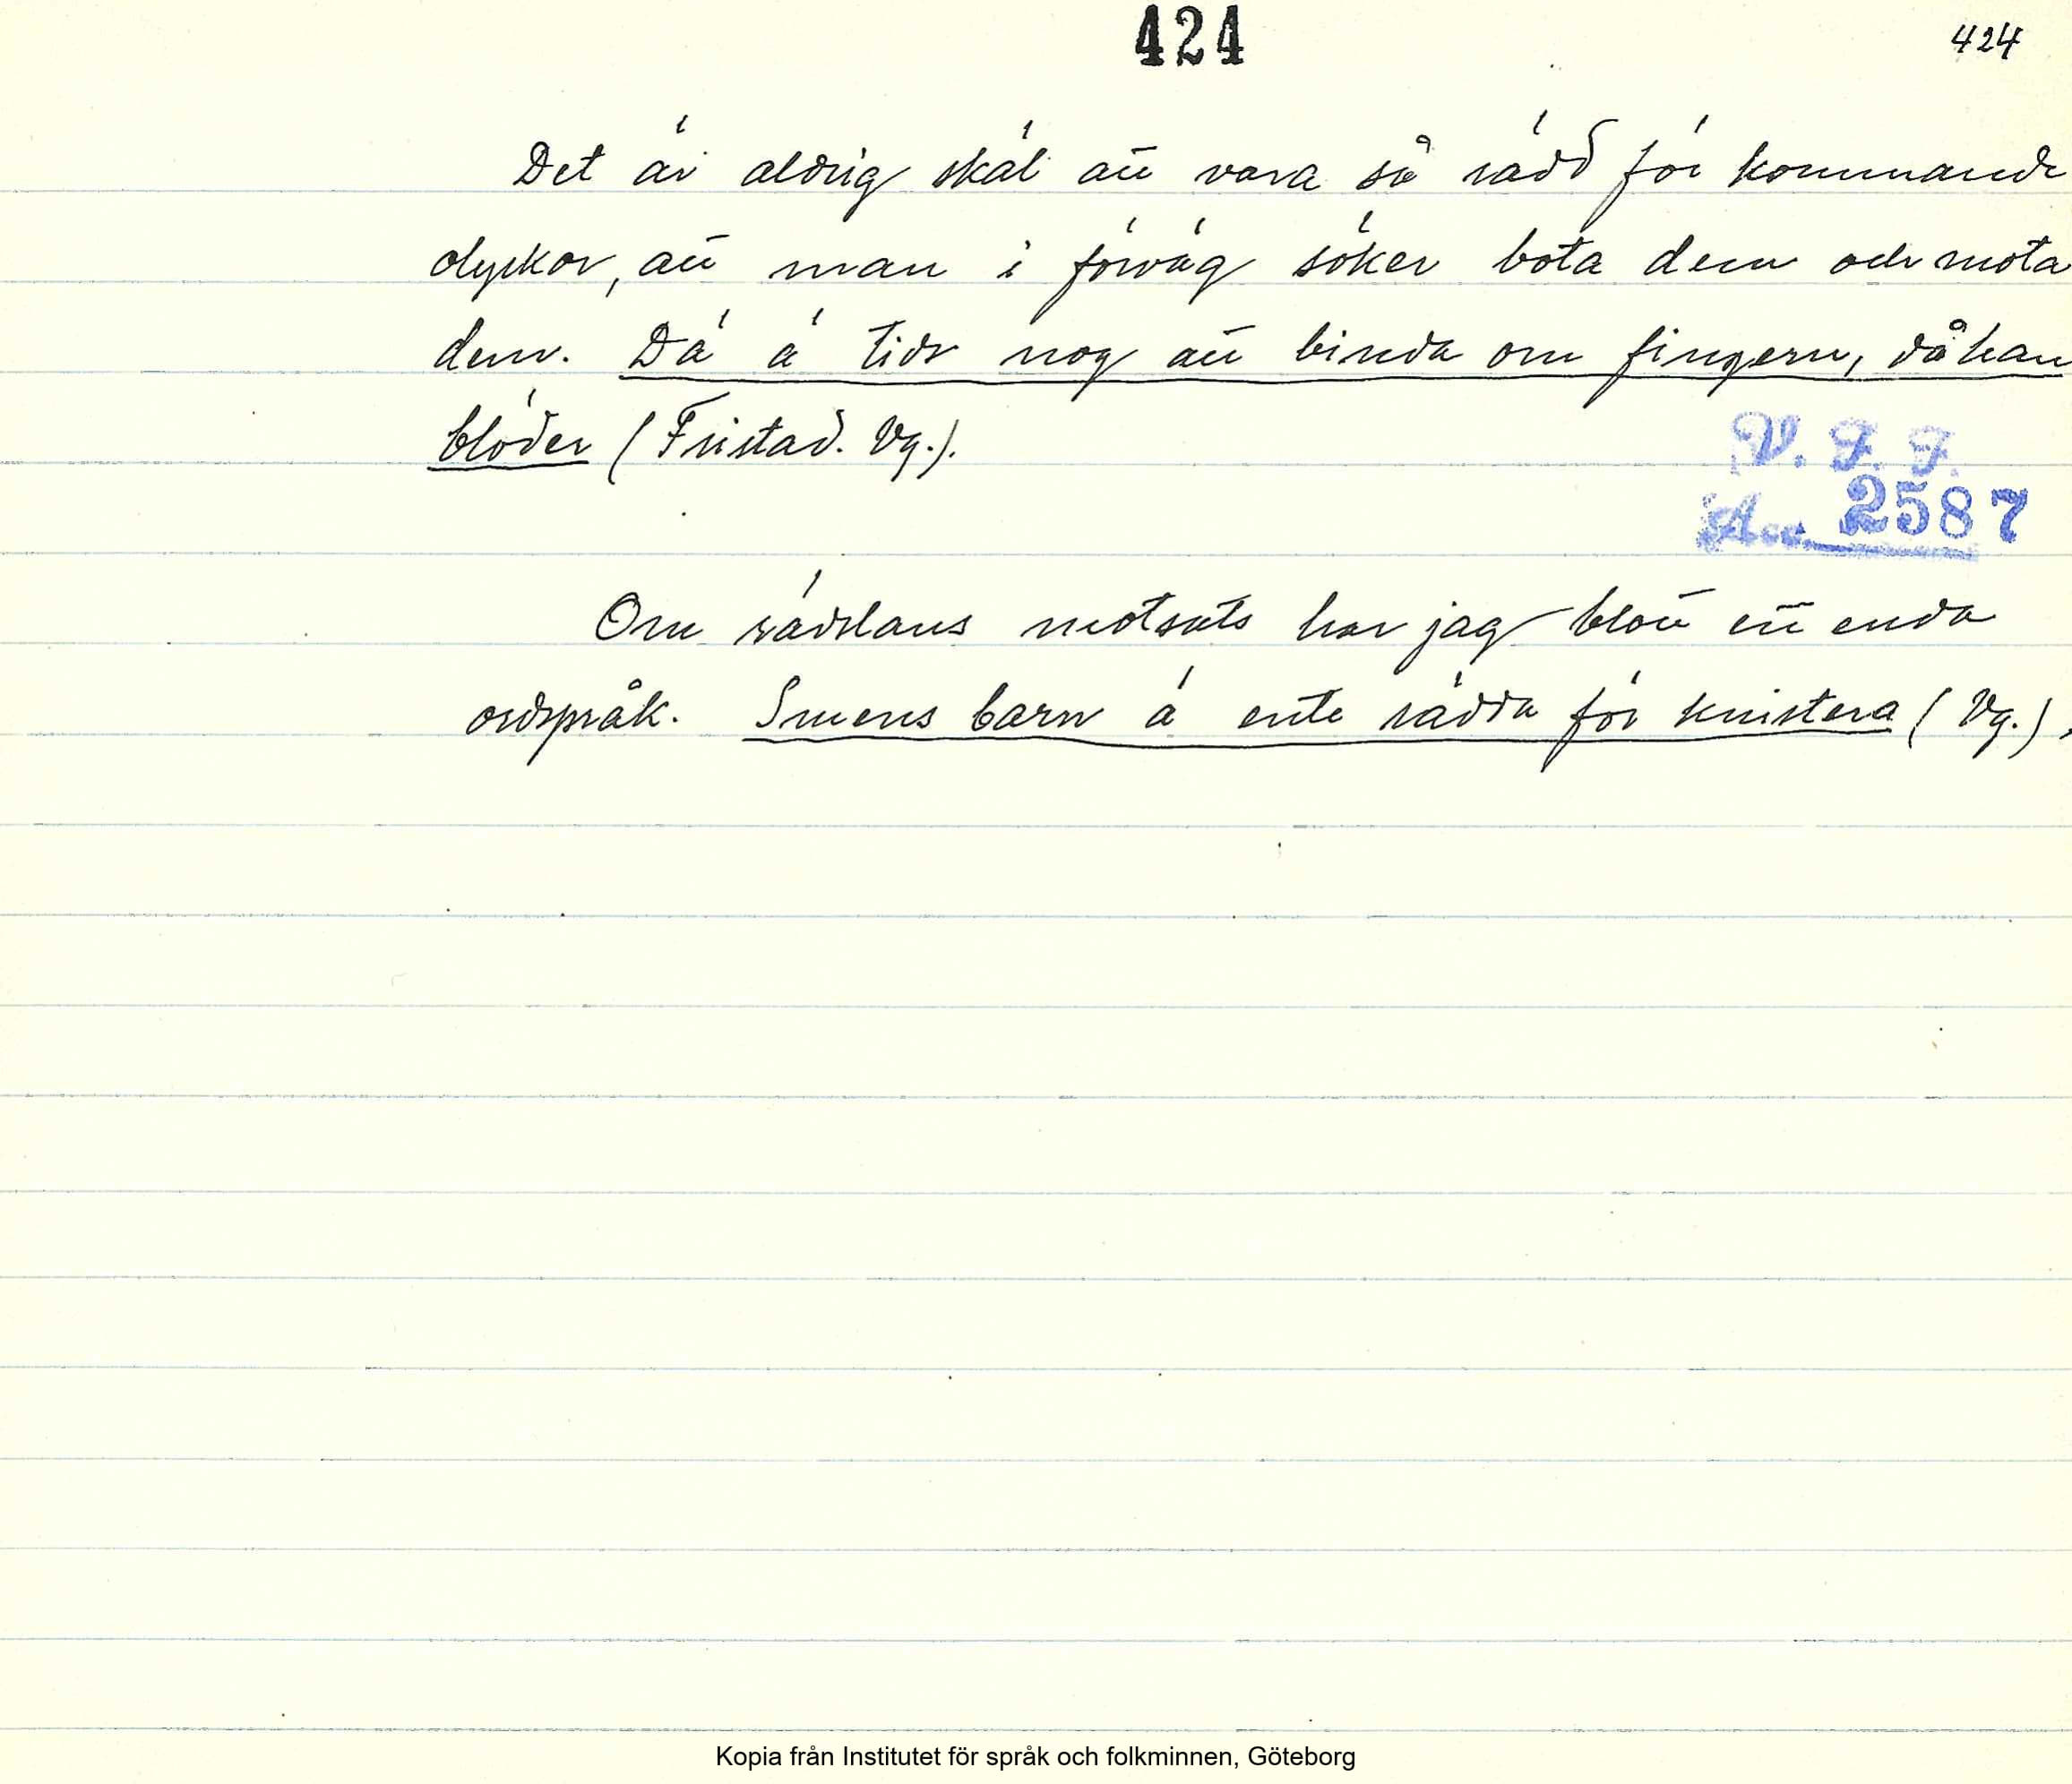 424
424
Det är aldrig skäl att vara så rädd för kommande
olyckor, att man i förväg söker bota dem och mota
dem. Dä ä tids nog att binda om fingern, då han
blöder (Fristad. Vg.).
V. F. F.
Acc. 2587
Om rädslans motsats har jag blott ett enda
ordspråk. Smens barn ä ente rädda för knistera (Vg.).
Kopia från Institutet för språk och folkminnen, Göteborg